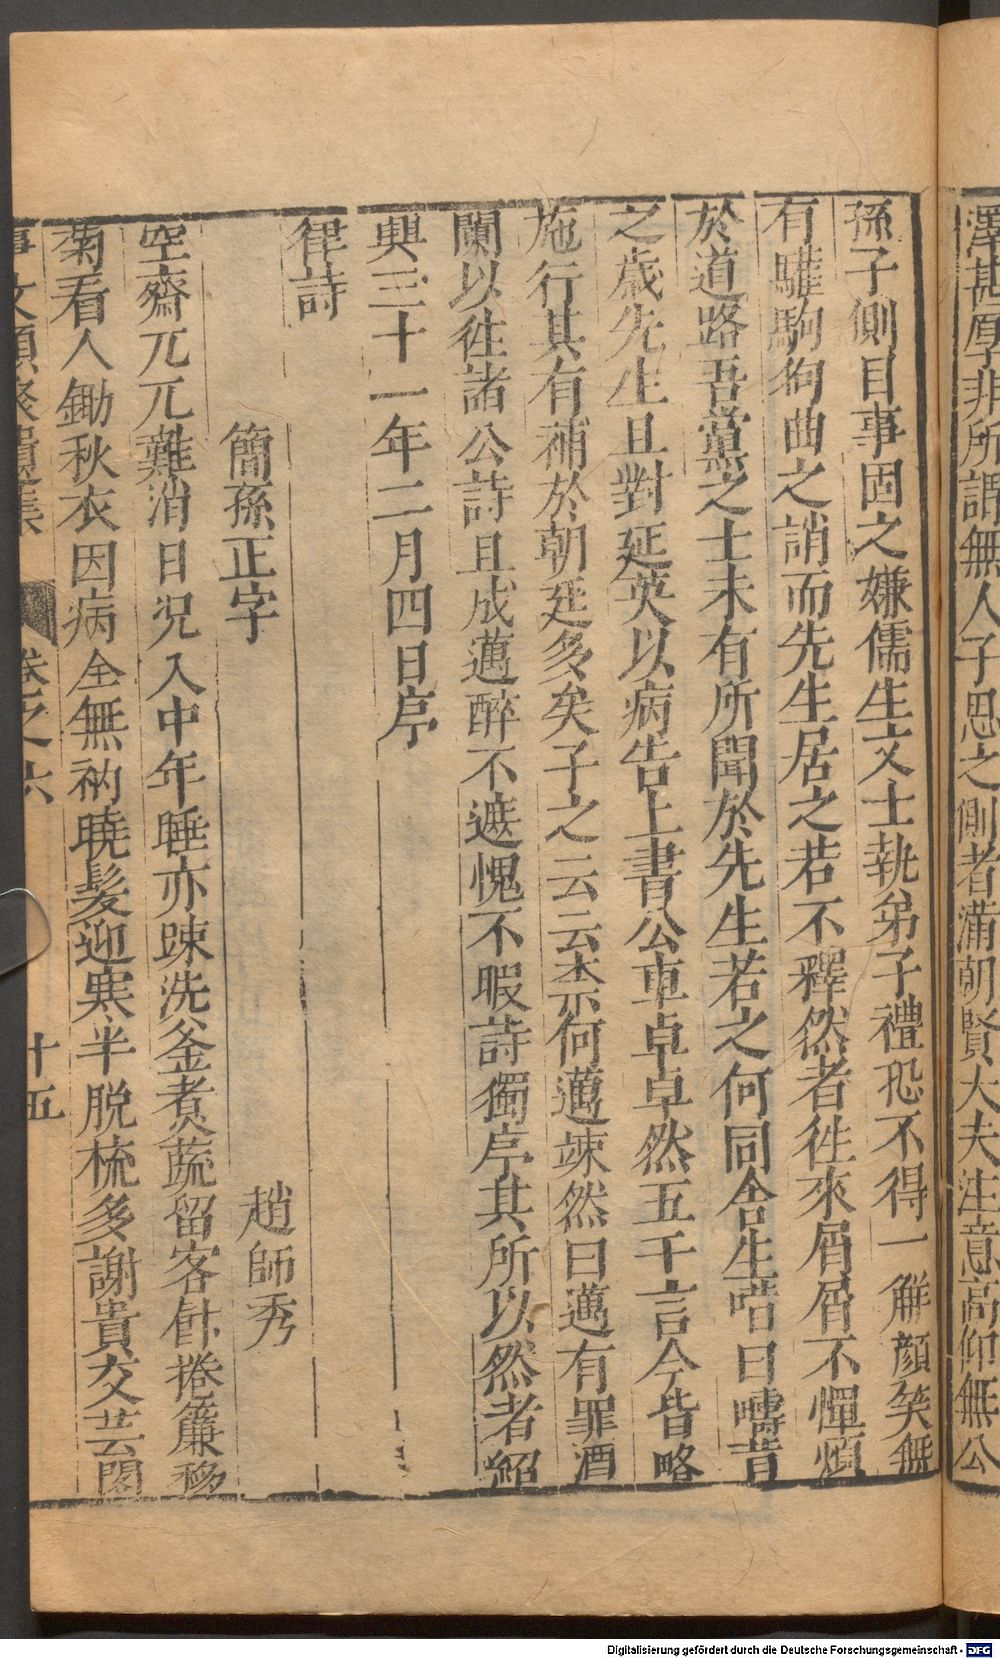 澤甚厚非所謂無人子思之側者滿朝賢大夫注意高仰無公
孫子側目事固之嫌儒生文士執弟子禮恐不得一解顔笑無
有驩駒狗曲之誚而先生居之若不釋然者徃來屑屑不憚煩
於道路吾黨之士未有所聞於先生若之何同舍生喑曰嚋昔
之歲先生且對延英以病告上書公車卓卓然五千言今皆略
施行其有補於朝廷多矣子之云云柰何邁竦然曰邁有罪酒
闌以徃諸公詩且成邁醉不遮愧不暇詩獨序其所以然者紹
興三十一年二月四日序
律詩
簡孫正字
趙師秀
空齋兀兀難消日况入中年睡亦踈洗釜煮蔬留客飰捲簾移
菊看人鋤秋衣因病全無衲曉髮迎寒半脱梳多謝貴交芸閣
事文類聚遺集 卷之六 十五
Digitalisierung gefördert durch die Deutsche Forschungsgemeinschaft - DFG